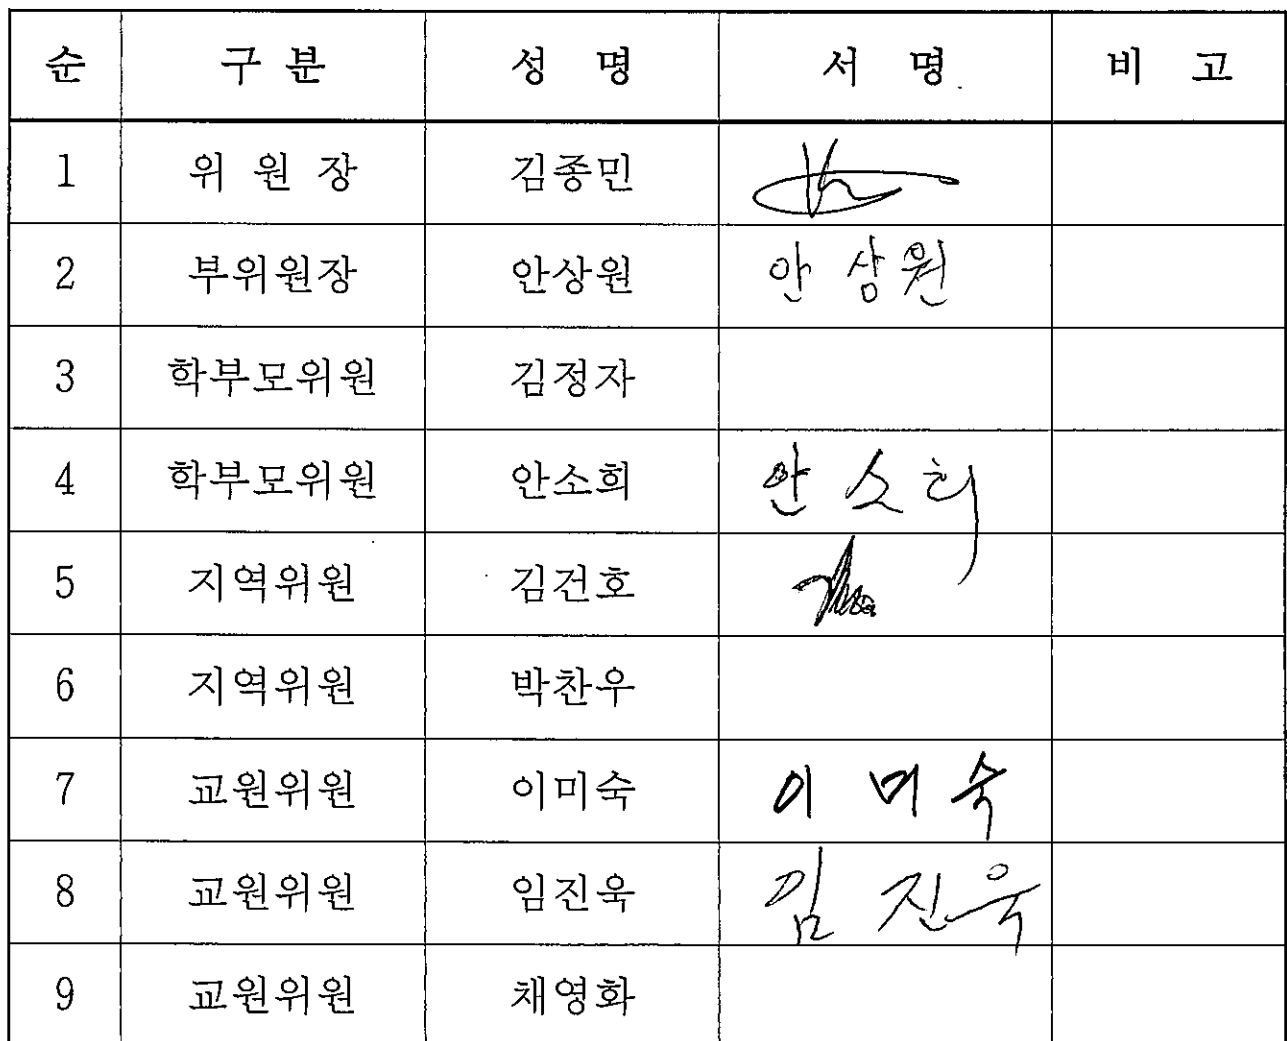 순 구분 성 명 서 명 비 고
1 위 원 장 김종민
2 부위원장 안상원 안 상 원
3 학부모위원 김정자
4 학부모위원 안소희 안 소 희
5 지역위원 김건호
6 지역위원 박찬우
7 교원위원 이미숙 이 미 숙
8 교원위원 임진욱 임 진욱
9 교원위원 채영화